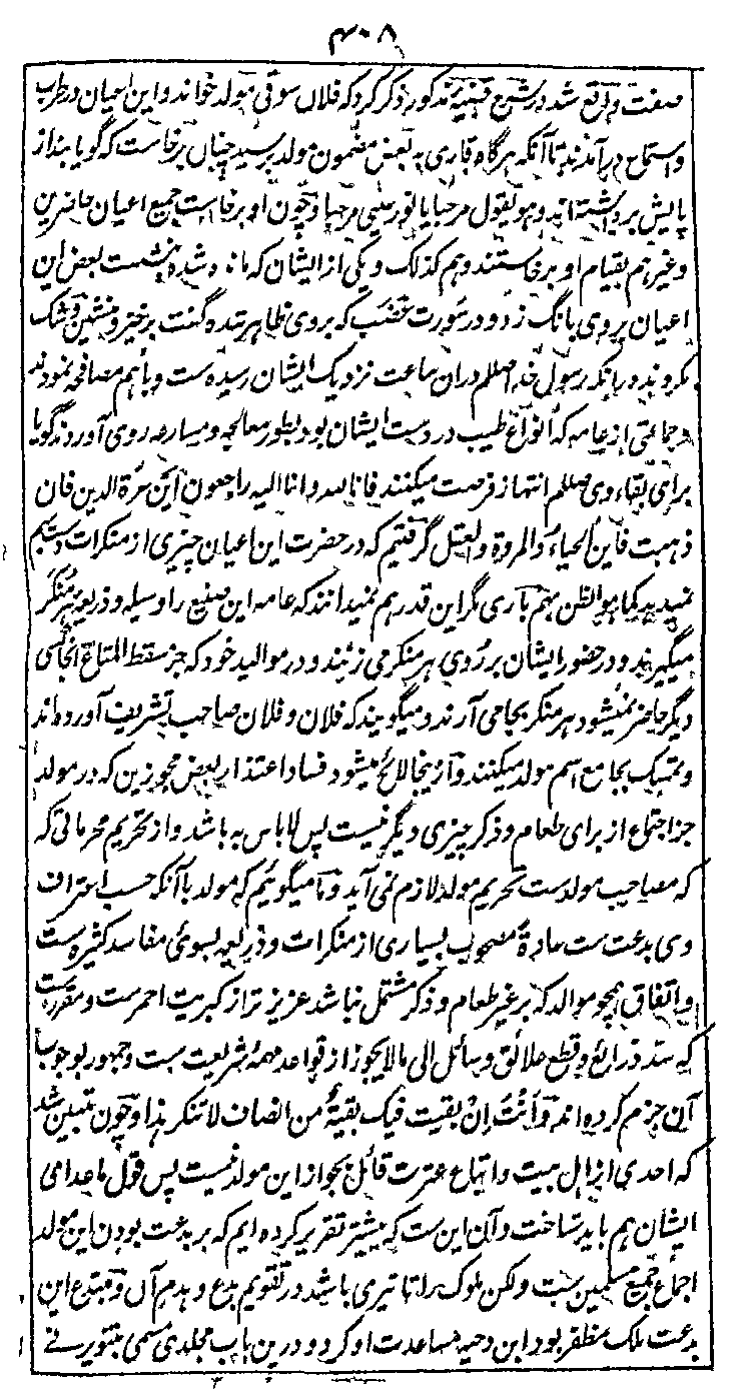 ۴۰۸
صفت واقع شد در شرح قضیه مذکور ذکر کرد که فلان سوقی مولد خواند و این اعیان در طرب
و استماع درآمدند تا آنکه هرگاه قاری به بعض مضمون مولد برسید چنان برخاست که گویا بند از
پایش برداشته اند و هو یقول مرحبا یا نور عینی مرحبا و چون او برخاست جمیع اعیان حاضرین
و غیرهم بقیام او برخاستند و هم کذلک و یکی از ایشان که مانده شده بنشست بعض این
اعیان بر وی بانگ زد و در صورت غضب که بر وی ظاهر شده گفت برخیز و منشین و شک
نکردند در آنکه رسول خدا صلعم دران ساعت نزدیک ایشان رسیده ست و باهم مصافحه نمودند
و جماعتی از عامه که انواع طیب در دست ایشان بود بطور معالجه و مسارعه روی آوردند گویا
برای بقاء وی صلعم انتهاز فرصت میکنند فانا لله و انا الیه راجعون این عزة الدین فان
ذهبت فاین الحیاء و المروة و العقل گرفتیم که در حضرت این اعیان چیزی از منکرات دست بهم
نمیدهد کما هو الظن بهم باری مگر این قدر هم نمیدانند که عامه این صنیع را وسیله و ذریعه هر منکر
میگیرند و در حضور ایشان بر روی هر منکر می زنند و در موالید خود که جز سقط المتاع انجا کسی
دیگر حاضر نمیشود هر منکر بجا می آرند و میگویند که فلان و فلان صاحب تشریف آورده اند
و تمسک بجامع اسم مولد میکنند و از ینجا لائح میشود فساد اعتذار بعض مجوزین که در مولد
جز اجتماع از برای طعام و ذکر چیزی دیگر نیست پس لا باس به باشد و از تحریم محرماتی که
که مصاحب مولد ست تحریم مولد لازم نمی آید و ما میگوئیم که مولد با آنکه حسب اعتراف
وی بدعت ست عادة مصحوب بسیاری از منکرات و ذریعه بسوئی مفاسد کثیره ست
و اتفاق همچو موالد که بر غیر طعام و ذکر مشتمل نباشد عزیز تر از کبریت احمر ست و مقرر ست
که سد ذرائع و قطع علائق وسائل الی ما لا یجوز از قواعد مهمه شریعت ست و جمهور بوجوب
آن جزم کرده اند و أنت إن بقیت فیک بقیة من انصاف لا تنکر هذا و چون تبیین شد
که احدی از اهل بیت و اتباع عترت قائل بجواز این مولد نیست پس قول ماعدای
ایشان هم باید شناخت و آن این ست که پیشتر تقریر کرده ایم که بر بدعت بودن این مولد
اجماع جمیع مسلمین ست و لکن ملوک را تاثیری باشد در تقویم بدع و هدم آن و مبتدع این
بدعت ملک مظفر بود ابن دحیه مساعدت او کرد و درین باب مجلدی مسمی بتنویر فی